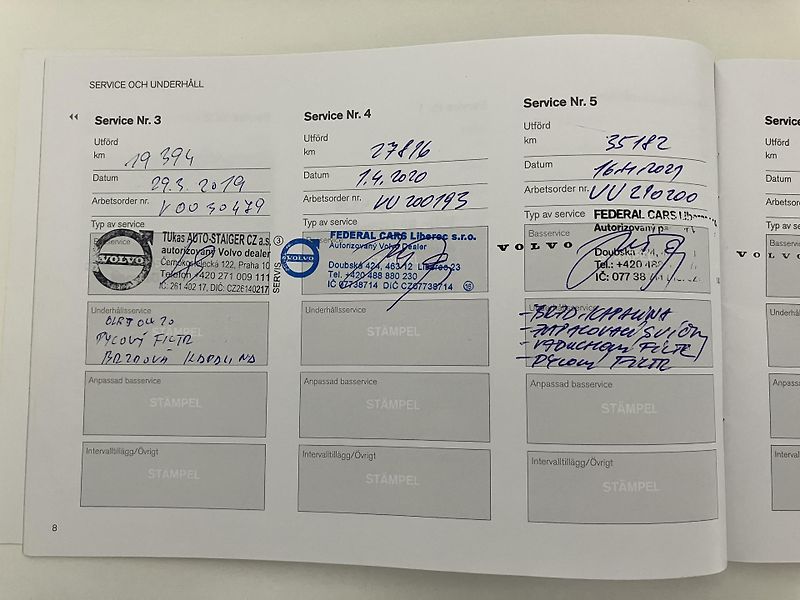 SERVICE OCH UNDERHÅLL
Service Nr. 3
Utförd
km 19 394
Datum 29.3. 2019
Arbetsorder nr. V0030479
Typ av service
Basservice
VOLVO
TUkas AUTO-STAIGER CZ a.s.
autorizovaný Volvo dealer
Černokostelecká 122, Praha 10
Telefon +420 271 009 111
IČ: 261 402 17, DIČ: CZ26140217
SERVIS 3
Underhållsservice
PYLOVÝ FILTR
BRZDOVÁ KAPALINA
Anpassad basservice
STÄMPEL
Intervalltillägg/Övrigt
STÄMPEL
8
Service Nr. 4
Utförd
km 27816
Datum 1.4. 2020
Arbetsorder nr. VU 200193
Typ av service
VOLVO
FEDERAL CARS Liberec s.r.o.
Autorizovaný Volvo Dealer
Doubská 424, 463 12 Liberec 23
Tel. +420 488 880 230
IČ 07738714 DIČ CZ07738714
Underhållsservice
STÄMPEL
Anpassad basservice
STÄMPEL
Intervalltillägg/Övrigt
STÄMPEL
Service Nr. 5
Utförd
km 35182
Datum 16.4.2021
Arbetsorder nr. VU210200
Typ av service
Basservice
VOLVO
FEDERAL CARS
Autorizovaný
Doubská 424,
Tel.: +420 488
IČ: 077 38
- BRZD. KAPALINA
- ZAPALOVACÍ SVÍČKY
- VZDUCHOVÝ FILTR
- PYLOVÝ FILTR
Anpassad basservice
STÄMPEL
Intervalltillägg/Övrigt
STÄMPEL
Service
Utförd
km
Datum
Arbetsorder
Typ av service
VOLVO